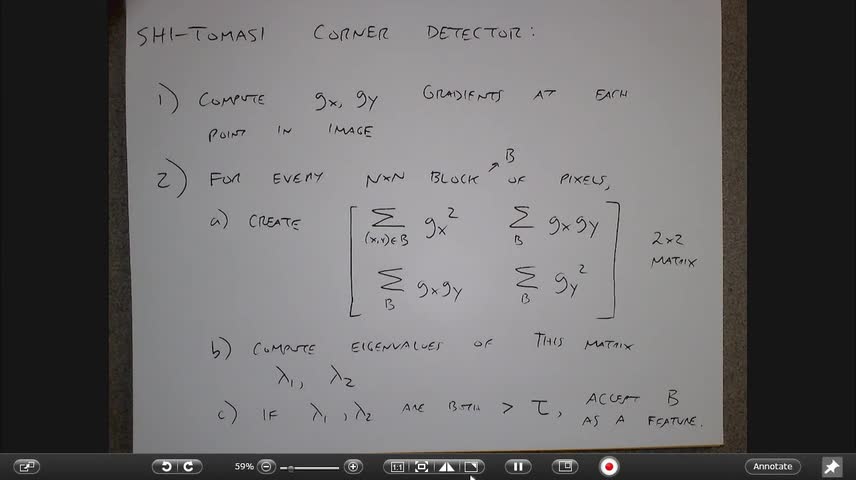 SHI-TOMASI CORNER DETECTOR:
1) COMPUTE gx, gy GRADIENTS AT EACH
POINT IN IMAGE
2) FOR EVERY N×N BLOCK → B OF PIXELS,
a) CREATE [ Σ (x,y)∈B gx² Σ B gxgy
Σ B gxgy Σ B gy² ] 2×2
MATRIX
b) COMPUTE EIGENVALUES OF THIS MATRIX
λ1, λ2
c) IF λ1, λ2 ARE BOTH > τ, ACCEPT B
AS A FEATURE.
59% 1:1 Annotate